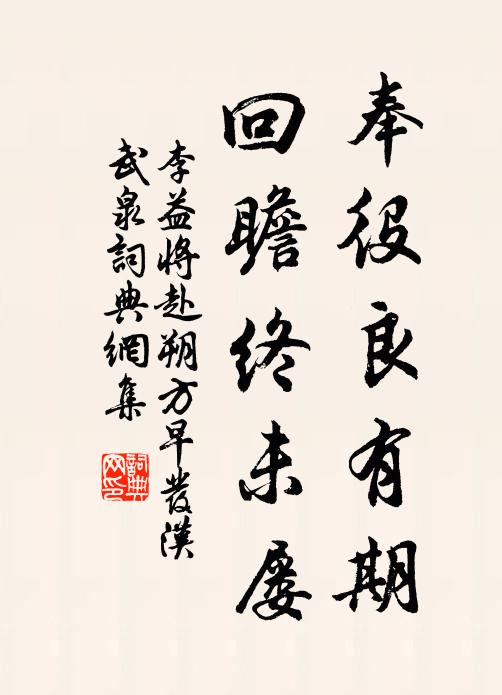 奉役良有期
回瞻終未屢
李益將赴朔方早發漢
武泉詞典網集
詞典
网印